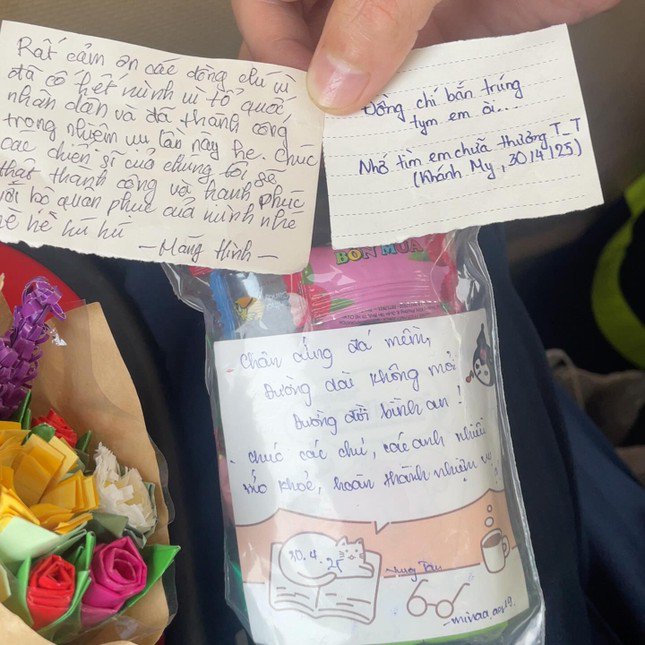 Rất cảm ơn các đồng chí vì
đã cố hết mình vì tổ quốc
nhân dân và đã thành công
trong nhiệm vụ lần này he. Chúc
các chiến sĩ của chúng tôi sẽ
thật thành công và hạnh phúc
với bộ quân phục của mình nhé
hè hè hú hú
— Măng Hình —
Đồng chí bắn trúng
tym em òi...
Nhớ tìm em chữa thương T_T
(Khánh My, 30/4/25)
BỐN MÙA
- Chân cứng đá mềm,
Đường dài không mỏi
Đường đời bình an!
- Chúc các chú, các anh nhiều
sức khoẻ, hoàn thành nhiệm vụ
30.4.25